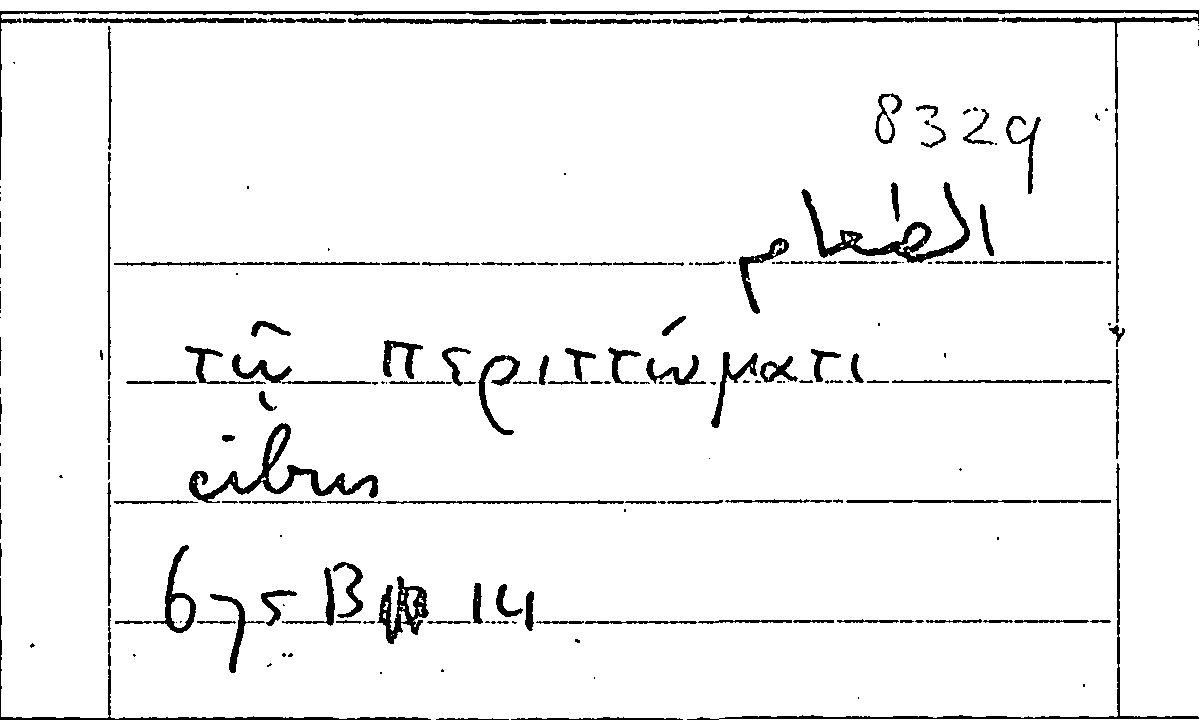 8329
الطعام
τῷ περιττώματι
cibus
675 B 14